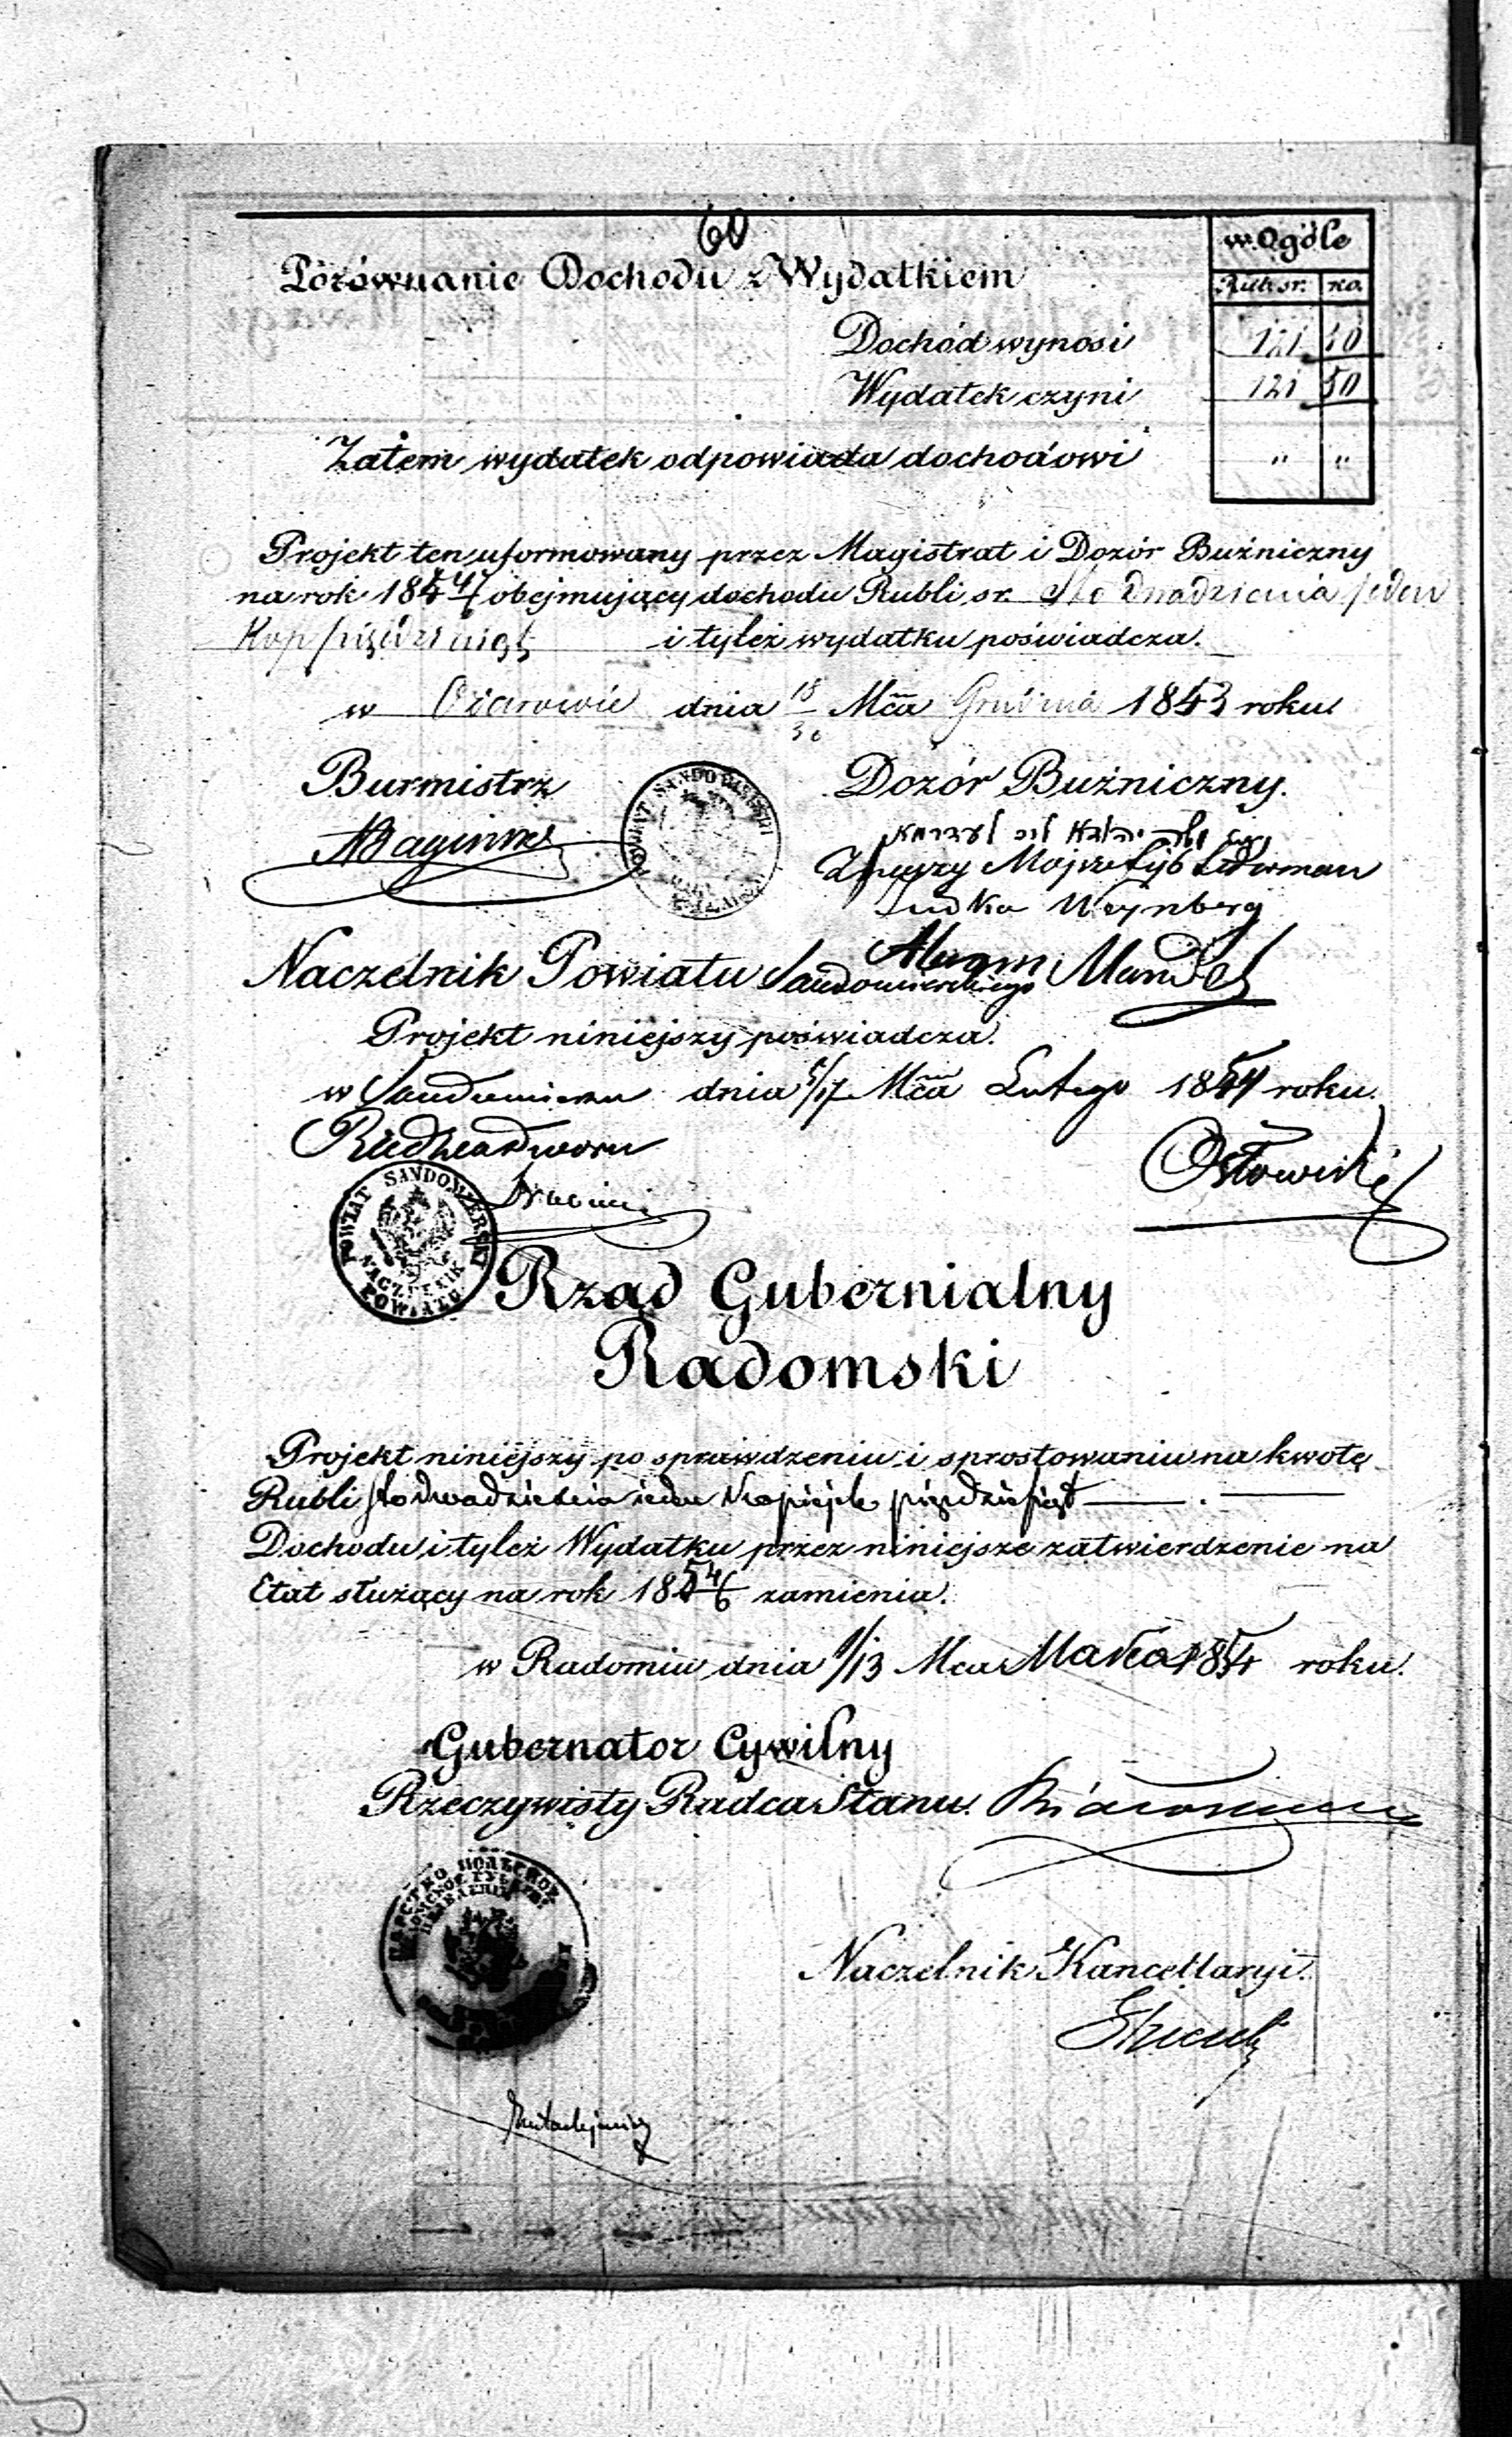 60
w Ogóle
Porównanie Dochodu z Wydatkiem
Rub sr. ko.
Dochód wynosi 121 50
Wydatek czyni 121 50
Zatem wydatek odpowiada dochodowi " "
Projekt ten uformowany przez Magistrat i Dozór Buźniczny
na rok 185 obejmujący dochodu Rubli sr. Sto Dwadzieścia jeden
Kop pięćdziesiąt i tyleż wydatku poświadcza.
w Ożarowie dnia 18/30 Mca Grudnia 1853 roku
Burmistrz Dozór Buźniczny.
POWIAT SANDOMIERSKI
Moyzesz Lederman
Judka Weynberg
Naczelnik Powiatu Sandomierskiego Mandel
Projekt niniejszy poświadcza.
w Sandomierzu dnia 5/17 Mca Lutego 1854 roku.
Radzca Dworu
POWIAT SANDOMIERSKI
NACZELNIK
POWIATU
Rząd Gubernialny
Radomski
Projekt niniejszy po sprawdzeniu i sprostowaniu na kwotę
Rubli sto dwadzieścia jeden Kopiejek pięćdziesiąt
Dochodu i tyleż Wydatku przez niniejsze zatwierdzenie na
Etat służący na rok 1854/6 zamienia.
w Radomiu dnia 1/13 Mca Marca 1854 roku.
Gubernator Cywilny
Rzeczywisty Radca Stanu.
Naczelnik Kancellaryi.